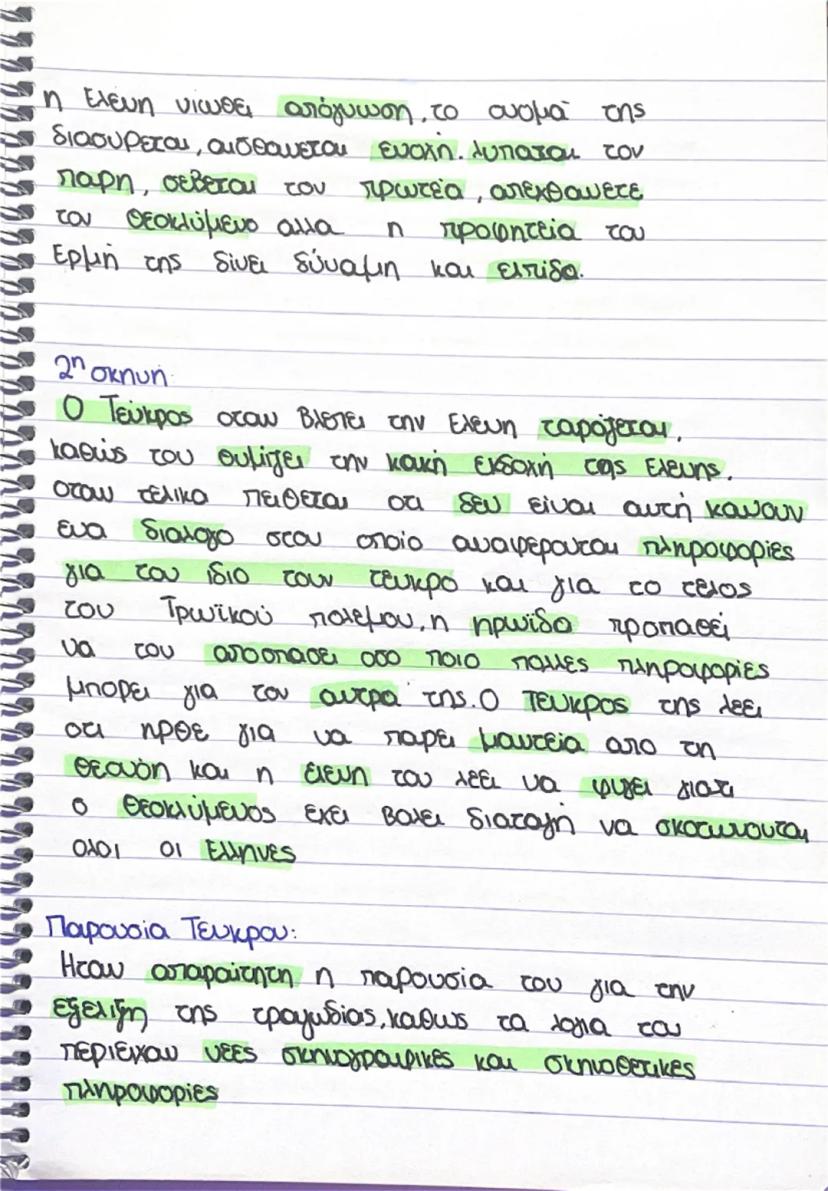 η Ελένη νιωθει απόγνωση, το ονομά της
διασυρεται, αισθανεται ενοχή. λυπαται τον
παρη, σεβεται τον πρωτέα, απεχθανετε
τον Θεοκλύμενο αλλα η προφητεία του
Ερμή της δίνει δύναμη και ελπιδα.
2η σκηνή
Ο Τεύκρος οταν βλεπει την Ελενη ταράζεται,
καθώς του θυμίζει την κακή εκδοχή της Ελενης.
οταν τελικα πειθεται οτι δεν είναι αυτή κανουν
ενα διαλογο στον οποίο αναφερονται πληροφορίες
για τον ιδιο τον τευκρο και για το τελος
του Τρωϊκού πολεμου, η ηρωίδα προπαθεί
να του αποσπασει οσο ποιο πολλες πληροφορίες
μπορει για τον αντρα της. Ο Τεύκρος της λεει
οτι ηρθε για να παρει μαντεία απο τη
Θεονόη και η ελενη του λεει να φυγει γιατι
ο Θεοκλύμενος εχει βαλει διαταγή να σκοτωνονται
ολοι οι Ελληνες
Παρουσία Τευκρου:
Ηταν απαραίτητη η παρουσία του για την
εξελιξη της τραγωδίας, καθως τα λογια του
περιεχουν νέες σκηνογραφικές και σκηνοθετικες
πληροφορίες